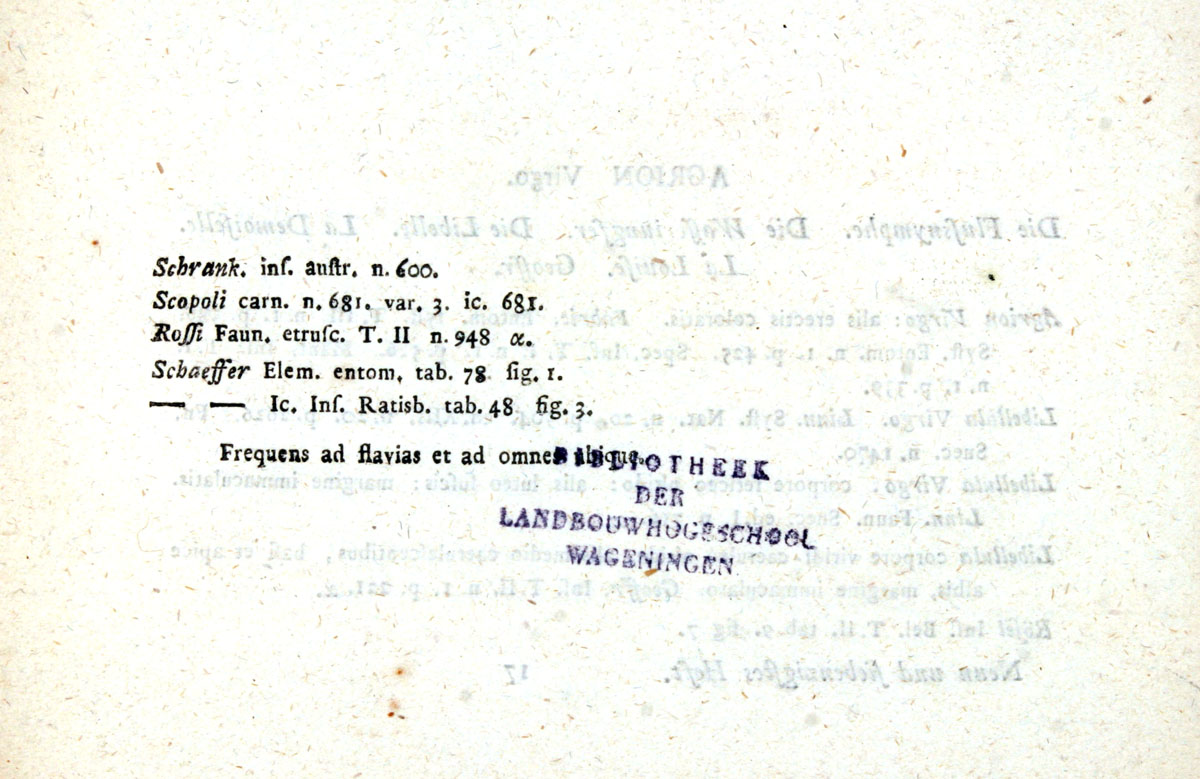 Schrank. inſ. auſtr. n. 600.
Scopoli carn. n. 681. var. 3. ic. 681.
Roſſi Faun. etruſc. T. II n. 948 α.
Schaeffer Elem. entom. tab. 78 fig. 1.
— — Ic. Inſ. Ratisb. tab. 48 fig. 3.
Frequens ad flavias et ad omnes ubique.
BIBLIOTHEEK
DER
LANDBOUWHOGESCHOOL
WAGENINGEN